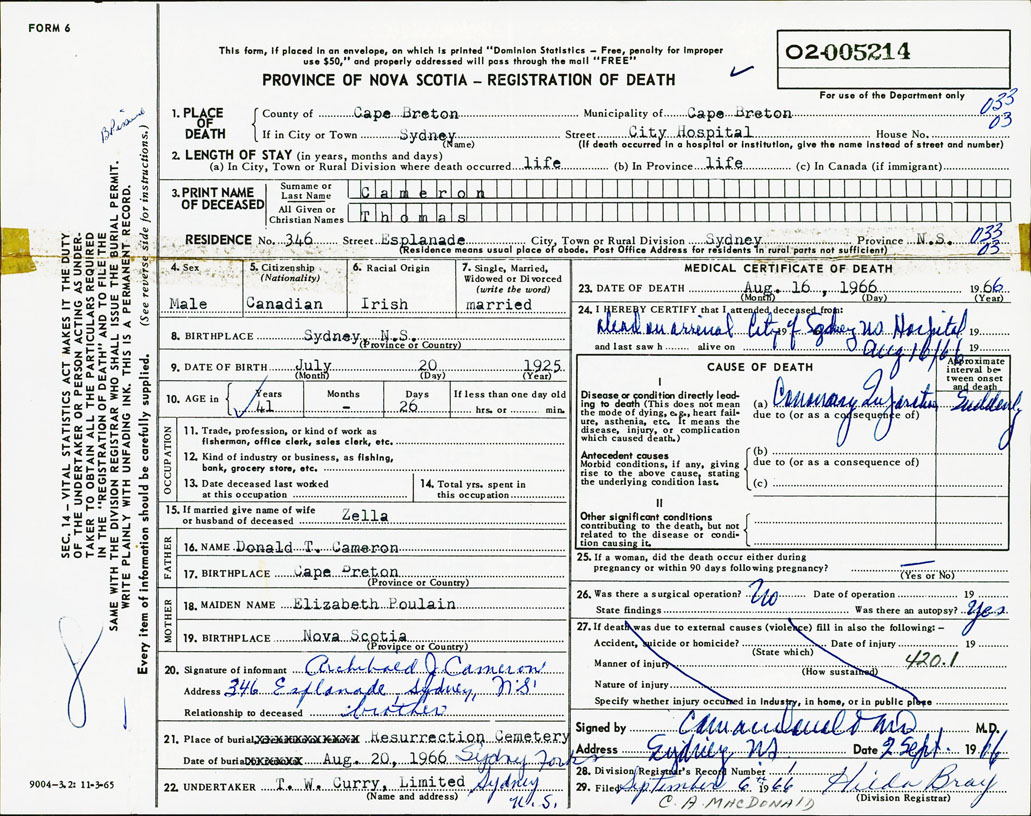 FORM 6
This form, if placed in an envelope, on which is printed "Dominion Statistics – Free, penalty for improper
use $50," and properly addressed will pass through the mail "FREE"
PROVINCE OF NOVA SCOTIA – REGISTRATION OF DEATH
02-005214
For use of the Department only
033
03
SEC. 14 – VITAL STATISTICS ACT MAKES IT THE DUTY
OF THE UNDERTAKER OR PERSON ACTING AS UNDER-
TAKER TO OBTAIN ALL THE PARTICULARS REQUIRED
IN THE "REGISTRATION OF DEATH" AND TO FILE THE
SAME WITH THE DIVISION REGISTRAR WHO SHALL ISSUE THE BURIAL PERMIT.
WRITE PLAINLY WITH UNFADING INK. THIS IS A PERMANENT RECORD.
Every item of information should be carefully supplied. (See reverse side for instructions.)
1. PLACE OF DEATH
County of Cape Breton Municipality of Cape Breton
If in City or Town Sydney Street City Hospital House No.
(Name) (If death occurred in a hospital or institution, give the name instead of street and number)
2. LENGTH OF STAY (in years, months and days)
(a) In City, Town or Rural Division where death occurred life (b) In Province life (c) In Canada (if immigrant)
3. PRINT NAME OF DECEASED
Surname or Last Name Cameron
All Given or Christian Names Thomas
RESIDENCE No. 346 Street Esplanade City, Town or Rural Division Sydney Province N.S. 033
03
(Residence means usual place of abode. Post Office Address for residents in rural parts not sufficient)
4. Sex
Male
5. Citizenship
(Nationality)
Canadian
6. Racial Origin
Irish
7. Single, Married,
Widowed or Divorced
(write the word)
married
8. BIRTHPLACE Sydney, N.S.
(Province or Country)
9. DATE OF BIRTH July 20 1925
(Month) (Day) (Year)
10. AGE in
Years Months Days If less than one day old
41 – 26 hrs. or min.
OCCUPATION
11. Trade, profession, or kind of work as
fisherman, office clerk, sales clerk, etc.
12. Kind of industry or business, as fishing,
bank, grocery store, etc.
13. Date deceased last worked
at this occupation
14. Total yrs. spent in
this occupation
15. If married give name of wife
or husband of deceased Zella
FATHER
16. NAME Donald T. Cameron
17. BIRTHPLACE Cape Breton
(Province or Country)
MOTHER
18. MAIDEN NAME Elizabeth Poulain
19. BIRTHPLACE Nova Scotia
(Province or Country)
20. Signature of informant Archibald J. Cameron
Address 346 Esplanade, Sydney, N.S.
Relationship to deceased brother
21. Place of burial XXXXXXXXXX Resurrection Cemetery
Date of burial XXXXXX Aug. 20, 1966 Sydney Forks
22. UNDERTAKER T. W. Curry, Limited Sydney
(Name and address) N.S.
MEDICAL CERTIFICATE OF DEATH
23. DATE OF DEATH Aug. 16, 1966 1966
(Month) (Day) (Year)
24. I HEREBY CERTIFY that I attended deceased from:
Dead on arrival City of Sydney NS Hospital 19
and last saw h alive on Aug 16/66 19
CAUSE OF DEATH
Approximate
interval be-
tween onset
and death
I
Disease or condition directly lead-
ing to death (This does not mean
the mode of dying, e.g., heart fail-
ure, asthenia, etc. It means the
disease, injury, or complication
which caused death.)
(a) Coronary Infarction Suddenly
due to (or as a consequence of)
Antecedent causes
Morbid conditions, if any, giving
rise to the above cause, stating
the underlying condition last.
(b)
due to (or as a consequence of)
(c)
II
Other significant conditions
contributing to the death, but not
related to the disease or condi-
tion causing it.
25. If a woman, did the death occur either during
pregnancy or within 90 days following pregnancy? —
(Yes or No)
26. Was there a surgical operation? No Date of operation 19
State findings Was there an autopsy? Yes
27. If death was due to external causes (violence) fill in also the following: –
Accident, suicide or homicide? Date of injury 19
(State which)
Manner of injury 420.1
(How sustained)
Nature of injury
Specify whether injury occurred in Industry, in home, or in public place
Signed by M.D.
Address Sydney NS Date 2 Sept. 1966
28. Division Registrar's Record Number
29. Filed September 6th 1966 Hilda Bray
C. A. MACDONALD (Division Registrar)
9004–3.2: 11-3-65